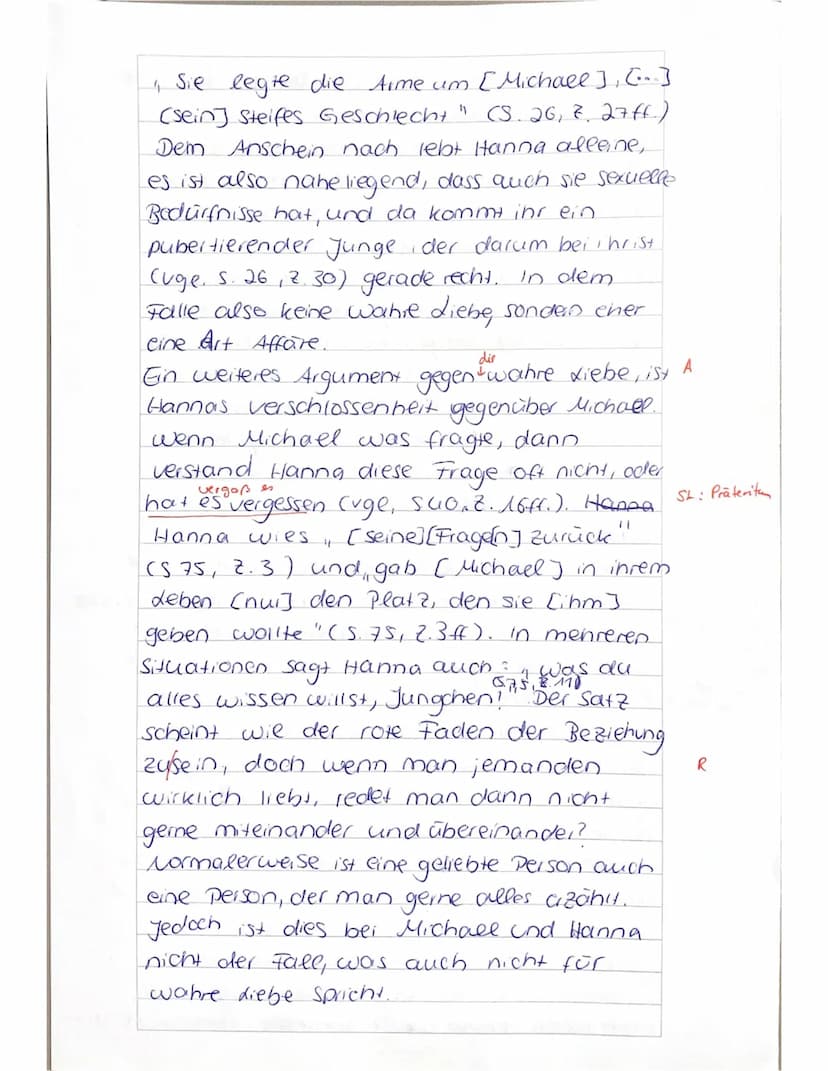 „ Sie legte die Arme um [Michael], [...]
[sein] steifes Geschlecht" (S. 26, Z. 27ff.)
Dem Anschein nach lebt Hanna alleine,
es ist also naheliegend, dass auch sie sexuelle
Bedürfnisse hat, und da kommt ihr ein
pubertierender Junge, der darum bei ihr ist
(vgl. S. 26, Z. 30) gerade recht. In dem
Falle also keine wahre Liebe, sondern eher
eine Art Affäre.
die
Ein weiteres Argument gegen wahre Liebe, ist A
Hannas Verschlossenheit gegenüber Michael.
Wenn Michael was fragte, dann
verstand Hanna diese Frage oft nicht, oder
vergaß es
hat es vergessen (vgl. S40. Z. 16ff.). Hanna SL: Präteritum
Hanna wies „ [seine][Frage[n] zurück"
(S 75, Z. 3) und „gab [Michael] in ihrem
Leben [nur] den Platz, den sie [ihm]
geben wollte" (S. 75, Z. 3ff). In mehreren
Situationen sagt Hanna auch: „ Was du
(S75, Z 11)
alles wissen willst, Jungchen!" Der Satz
scheint wie der rote Faden der Beziehung
zusein, doch wenn man jemanden R
wirklich liebt, redet man dann nicht
gerne miteinander und übereinander?
Normalerweise ist eine geliebte Person auch
eine Person, der man gerne alles erzählt.
Jedoch ist dies bei Michael und Hanna
nicht der Fall, was auch nicht für
wahre Liebe spricht.